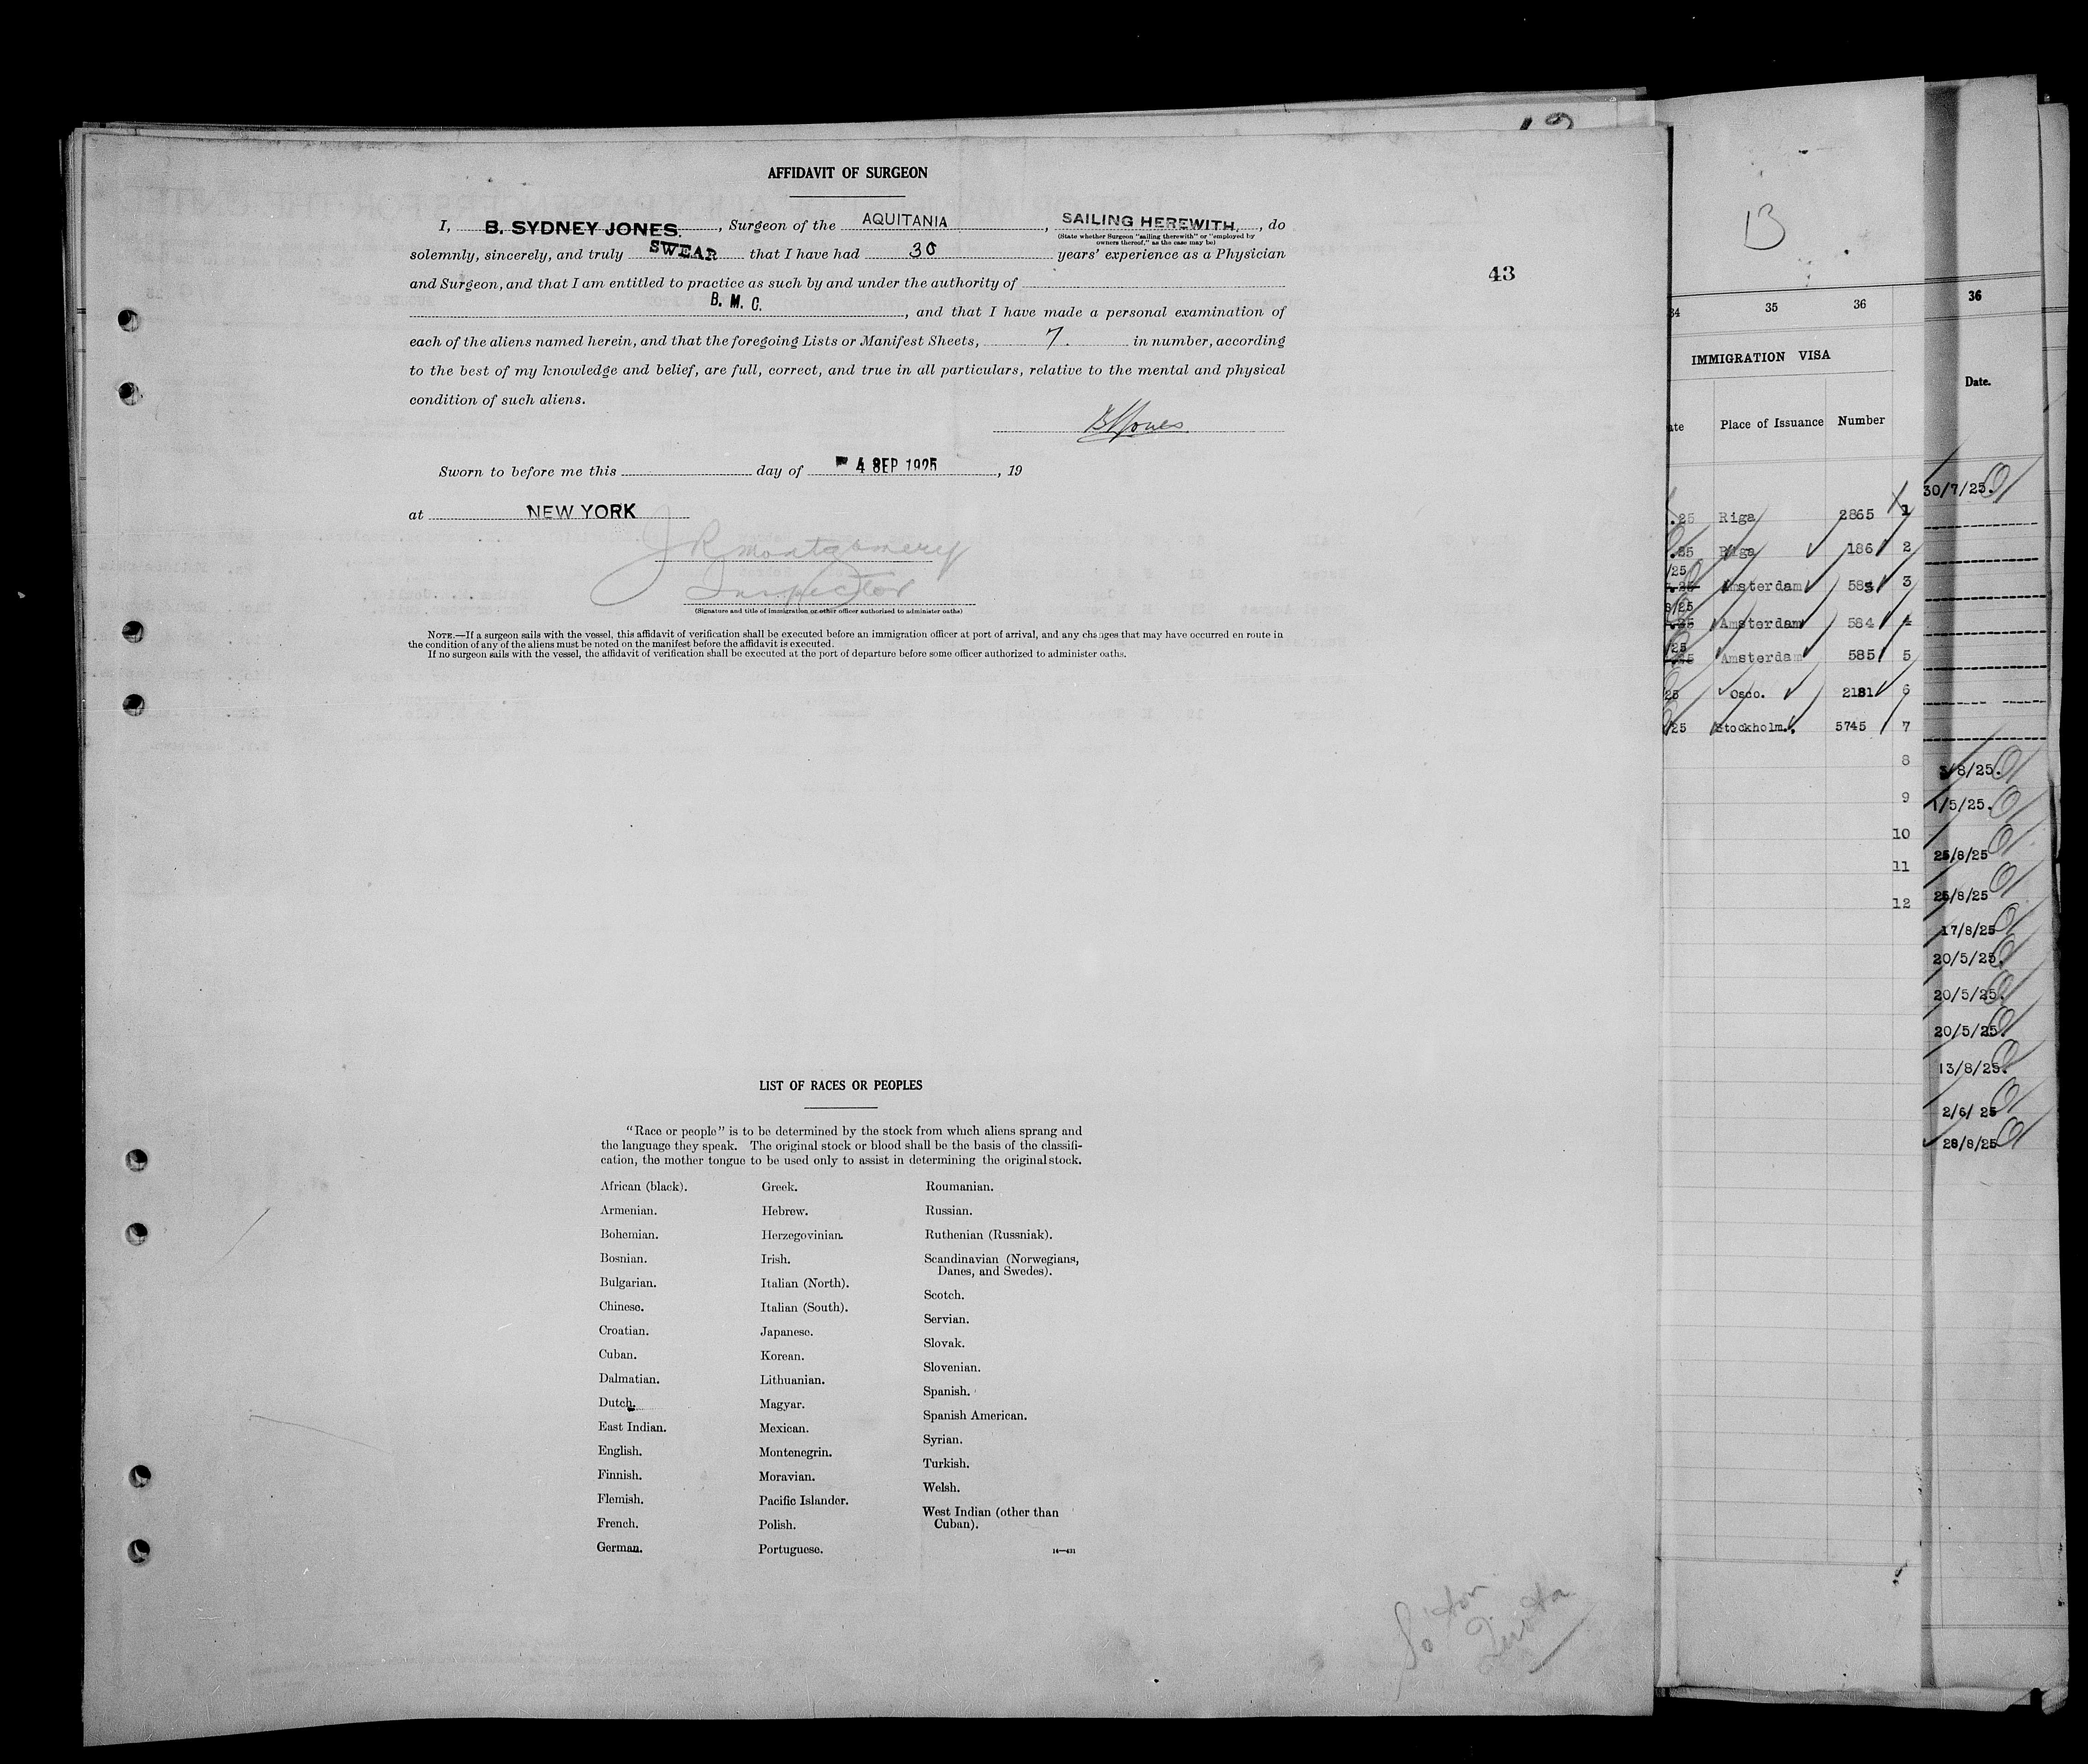 AFFIDAVIT OF SURGEON
I, B. SYDNEY JONES. , Surgeon of the AQUITANIA , SAILING HEREWITH. , do
(State whether Surgeon "sailing therewith" or "employed by
owners thereof," as the case may be)
solemnly, sincerely, and truly SWEAR that I have had 30 years' experience as a Physician
and Surgeon, and that I am entitled to practice as such by and under the authority of
B. M. C. , and that I have made a personal examination of
each of the aliens named herein, and that the foregoing Lists or Manifest Sheets, 7. in number, according
to the best of my knowledge and belief, are full, correct, and true in all particulars, relative to the mental and physical
condition of such aliens.
BSJones
Sworn to before me this day of 4 SEP 1925 , 19
at NEW YORK
J R Montgomery
Inspector
(Signature and title of immigration or other officer authorized to administer oaths)
NOTE.—If a surgeon sails with the vessel, this affidavit of verification shall be executed before an immigration officer at port of arrival, and any changes that may have occurred en route in
the condition of any of the aliens must be noted on the manifest before the affidavit is executed.
If no surgeon sails with the vessel, the affidavit of verification shall be executed at the port of departure before some officer authorized to administer oaths.
43
LIST OF RACES OR PEOPLES
"Race or people" is to be determined by the stock from which aliens sprang and
the language they speak. The original stock or blood shall be the basis of the classifi-
cation, the mother tongue to be used only to assist in determining the original stock.
African (black).
Armenian.
Bohemian.
Bosnian.
Bulgarian.
Chinese.
Croatian.
Cuban.
Dalmatian.
Dutch.
East Indian.
English.
Finnish.
Flemish.
French.
German.
Greek.
Hebrew.
Herzegovinian.
Irish.
Italian (North).
Italian (South).
Japanese.
Korean.
Lithuanian.
Magyar.
Mexican.
Montenegrin.
Moravian.
Pacific Islander.
Polish.
Portuguese.
Roumanian.
Russian.
Ruthenian (Russniak).
Scandinavian (Norwegians,
Danes, and Swedes).
Scotch.
Servian.
Slovak.
Slovenian.
Spanish.
Spanish American.
Syrian.
Turkish.
Welsh.
West Indian (other than
Cuban).
14—431
So'ton
Quota
B
34 35 36
IMMIGRATION VISA
ate Place of Issuance Number
.25 Riga 2865 1
.25 Riga 186 2
/25 Amsterdam 583 3
/25 Amsterdam 584 4
/25 Amsterdam 585 5
25 Osco. 2181 6
/25 Stockholm. 5745 7
8
9
10
11
12
36
Date.
30/7/25.
5/8/25.
1/5/25.
25/8/25
25/8/25
17/8/25
20/5/25.
20/5/25.
20/5/25.
13/8/25.
2/6/ 25
28/8/25